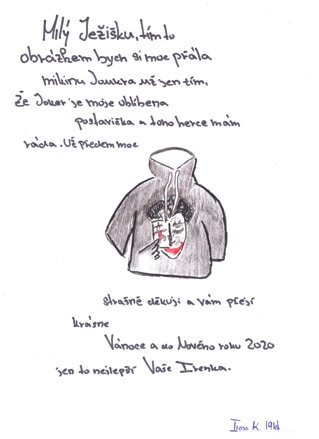 Milý Ježíšku, tímto
obrázkem bych si moc přála
mikinu Joukra už jen tím,
že Joker je moje oblíbena
postavička a toho herce mám
ráda. Už předem moc
strašně děkuji a vám přeji
krásne
Vánoce a do Nového roku 2020
jen to nejlepší Vaše Irenka.
K. 19let